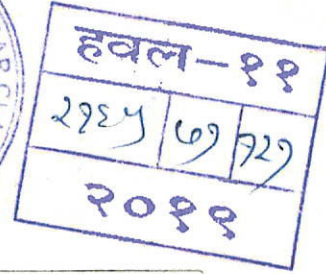 हवल-११
२१६५ ७१ १२१
२०१९